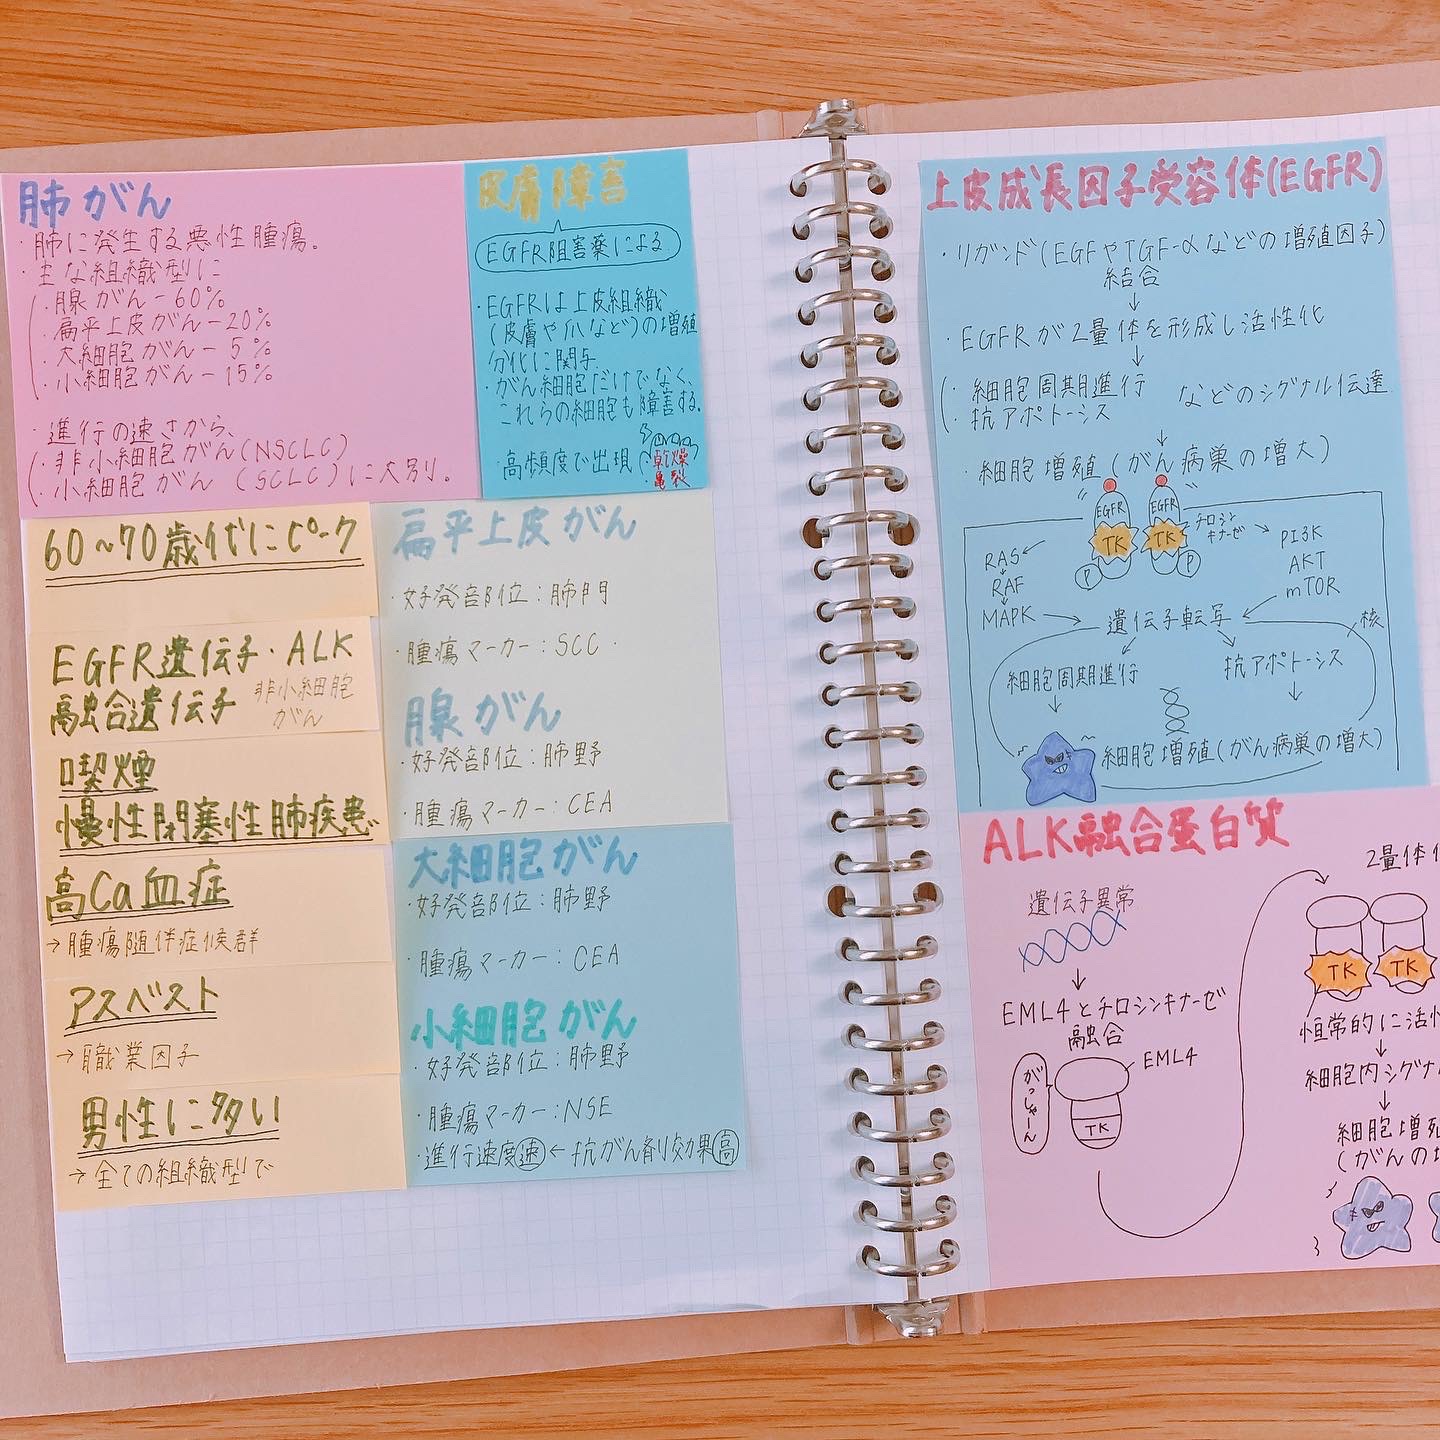 肺がん
・肺に発生する悪性腫瘍。
・主な組織型に
・腺がん-60%
・扁平上皮がん-20%
・大細胞がん-5%
・小細胞がん-15%
・進行の速さから、
・非小細胞がん(NSCLC)
・小細胞がん(SCLC)に大別。
皮膚障害
EGFR阻害薬による
・EGFRは上皮組織
(皮膚や爪など)の増殖
分化に関与
・がん細胞だけでなく、
これらの細胞も障害する。
・高頻度で出現
・乾燥
・亀裂
60~70歳代にピーク
EGFR遺伝子・ALK
融合遺伝子
非小細胞
がん
喫煙
慢性閉塞性肺疾患
高Ca血症
→腫瘍随伴症候群
アスベスト
→職業因子
男性に多い
→全ての組織型で
扁平上皮がん
・好発部位:肺門
・腫瘍マーカー:SCC
腺がん
・好発部位:肺野
・腫瘍マーカー:CEA
大細胞がん
・好発部位:肺野
・腫瘍マーカー:CEA
小細胞がん
・好発部位:肺野
・腫瘍マーカー:NSE
・進行速度速←抗がん剤効果高
上皮成長因子受容体(EGFR)
・リガンド(EGFやTGF-αなどの増殖因子)
結合
↓
・EGFRが2量体を形成し活性化
↓
・細胞周期進行
・抗アポトーシス
などのシグナル伝達
↓
・細胞増殖(がん病巣の増大)
EGFR EGFR
TK TK
チロシン
キナーゼ
P P
RAS
RAF
MAPK
PI3K
AKT
mTOR
遺伝子転写
核
細胞周期進行
抗アポトーシス
細胞増殖(がん病巣の増大)
ALK融合蛋白質
遺伝子異常
↓
EML4とチロシンキナーゼ
融合
がっしゃーん
EML4
TK
2量体
TK TK
恒常的に活
↓
細胞内シグナ
↓
細胞増
(がんの